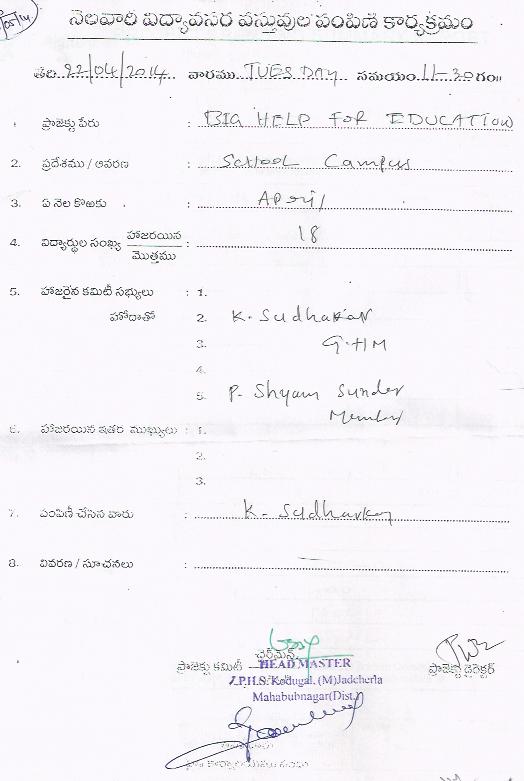 05/14
నెలవారి విద్యావసర వస్తువుల పంపిణి కార్యక్రమం
తేది..22/04/2014... వారము.TUESDAY.. సమయం.11-30గం॥
1. ప్రాజెక్టు పేరు : BIG HELP FOR EDUCATION
2. ప్రదేశము / ఆవరణ : SCHOOL Campus
3. ఏ నెల కొఱకు : April
4. విద్యార్థుల సంఖ్య హాజరయిన / మొత్తము : 18
5. హాజరైన కమిటీ సభ్యులు : 1.
హోదాతో 2. K. Sudhakar
3. G.HM
4.
5. P. Shyam Sunder
Member
6. హాజరయిన ఇతర ముఖ్యులు : 1.
2.
3.
7. పంపిణీ చేసిన వారు : K. Sudhakar
8. వివరణ / సూచనలు : —
ప్రాజెక్టు కమిటీ చైర్మన్
ప్రాజెక్టు డైరెక్టర్
HEAD MASTER
Z.P.H.S. Kodugal, (M)Jadcherla
Mahabubnagar(Dist.)